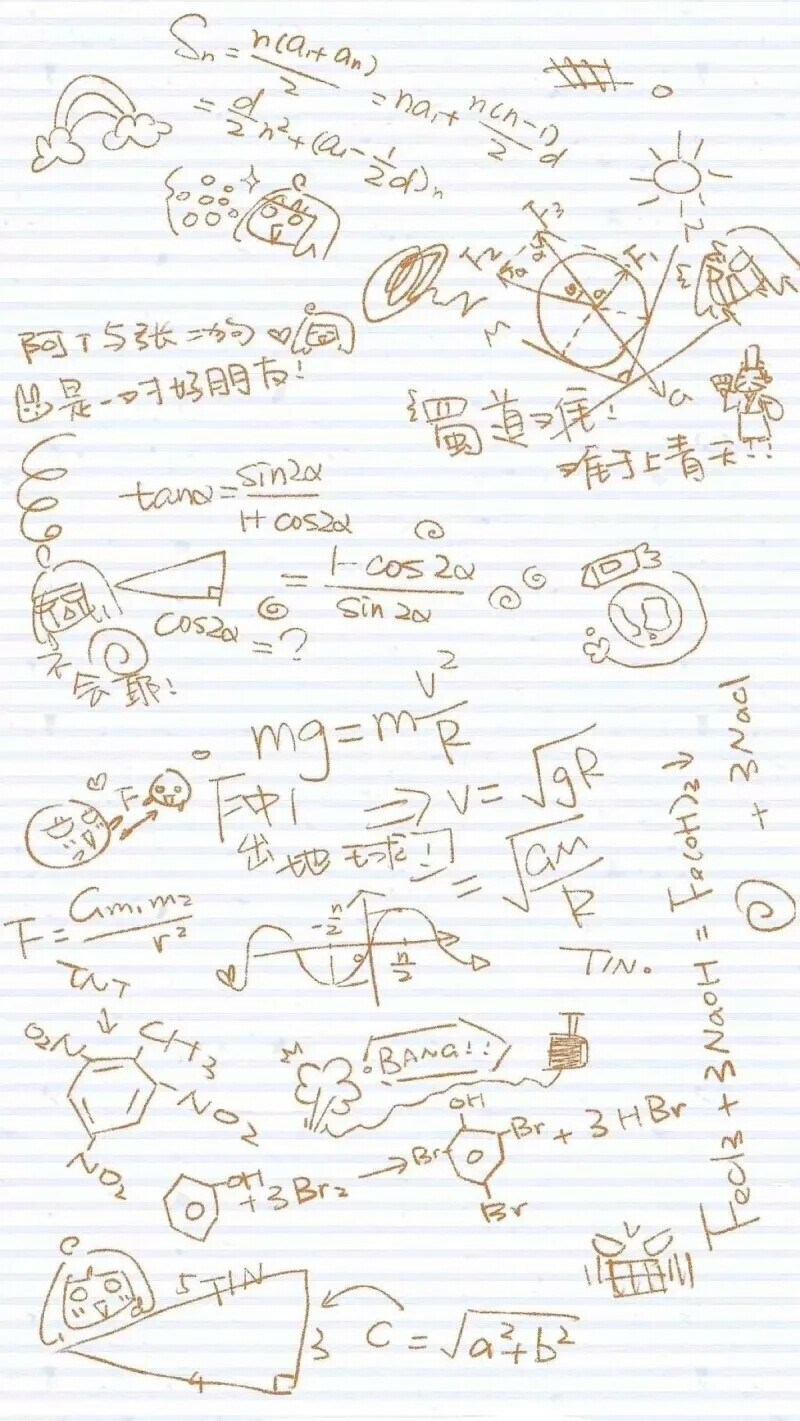 Sn = n(a₁+an)/2 = na₁ + n(n-1)/2 d
= d/2 n² + (a₁ - 1/2 d)n
F3
F2
F1
阿T与张二狗
是一对好朋友!
蜀道难!
难于上青天!!
tanα = sin2α/1+cos2α
= 1-cos2α/sin2α
cos2α = ?
不会耶!
mg = m v²/R
F
⇒ v = √gR
出地球!
= √GM/R
F = Gm₁m₂/r²
-π/2
0
π/2
TIN。
TNT
↓
O₂N
CH3
NO2
NO2
BANG!!
OH + 3Br₂ → OH Br Br Br + 3HBr
FeCl3 + 3NaOH = Fe(OH)3↓ + 3NaCl
5 TIN
3
4
C = √a²+b²